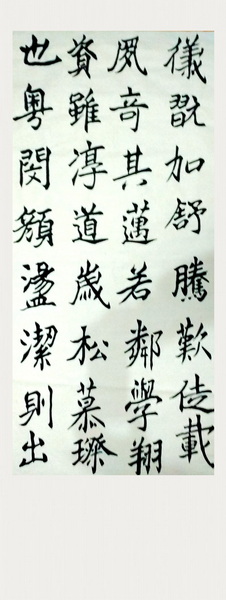 儀翫加舒騰歎徒載
夙奇其邁若鄰學翔
資雖淳道歲松慕璨
也粵閔額盪潔則出